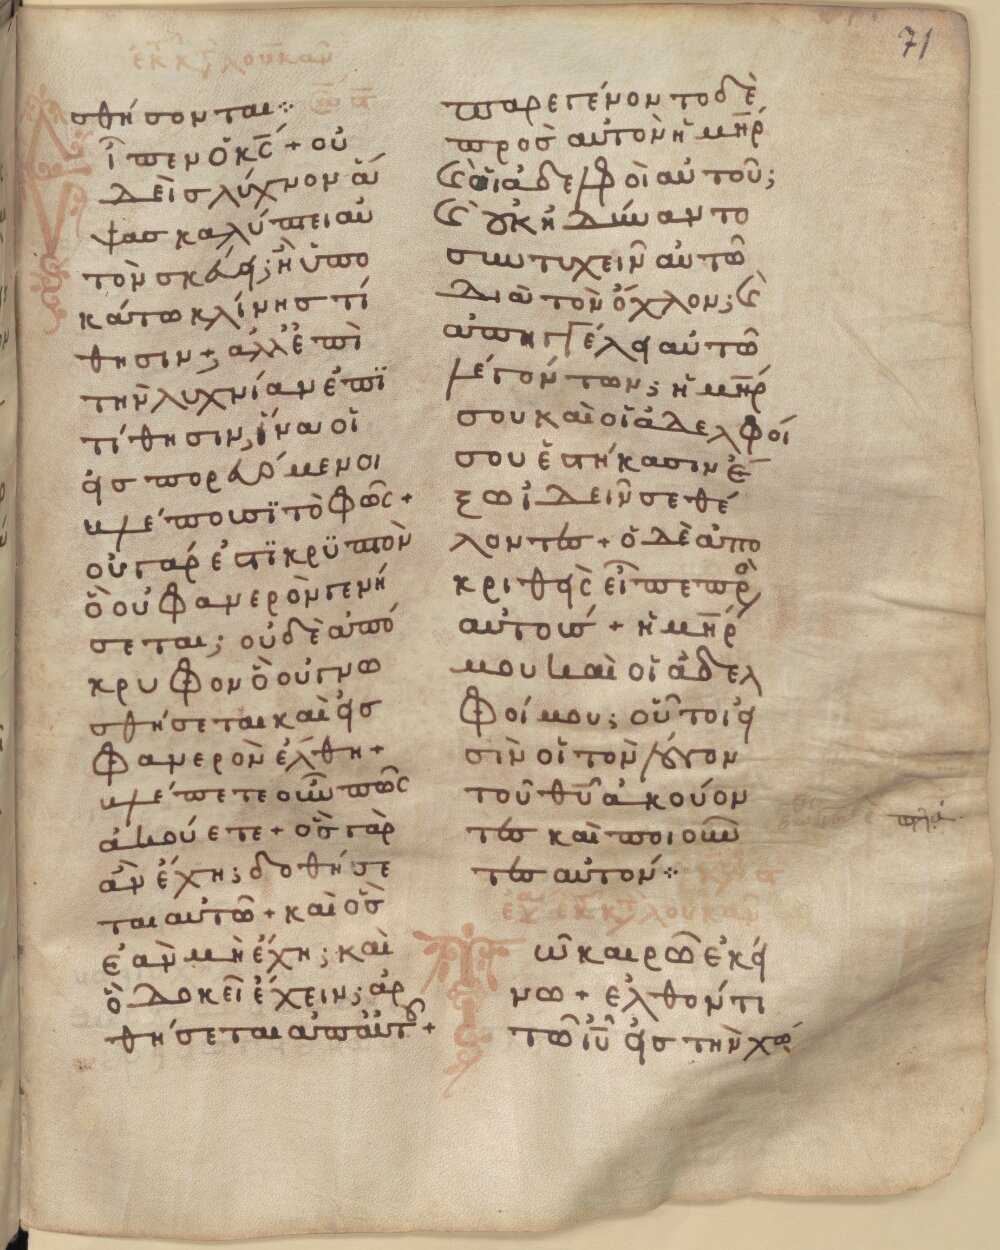 71
ἐκ κτ λουκαν
σθήσονται
εἶπεν ὁ κς + οὐ
δεὶς λύχνον ἅ
ψας καλύπτει αὐ
τὸν σκεύει; ἢ ὑπο
κάτω κλίνης τί
θησιν +; ἀλλ ἐπὶ
τὴν λυχνίαν ἐπϊ
τίθησιν; ἵνα οἱ
εἰσπορευόμενοι
βλέπωσϊ τὸ φῶς +
οὐ γάρ ἐστϊ κρϋπτὸν
ὃ οὐ φανερὸν γενή
σεται; οὐδὲ ἀπό
κρυφον ὃ οὐ γνω
σθήσεται καὶ εἰς
φανερὸν ἔλθη +
βλέπετε οὖν πῶς
ἀκούετε + ὃς γὰρ
ἂν ἔχη; δοθήσε
ται αὐτῶ + καὶ ὃς
ἐὰν μὴ ἔχη; καὶ
ὃ δοκεῖ ἔχειν; ἀρ
θήσεται ἀπ αὐτοῦ +
παρεγένοντο δὲ
πρὸς αὐτὸν ἡ μηρ
καὶ οἱ ἀδελφοὶ αὐτοῦ;
καὶ οὐκ ἠδύναντο
συντυχεῖν αὐτῶ
διὰ τὸν ὄχλον; καὶ
ἀπηγγέλει αὐτῶ
λέγόντων; ἡ μηρ
σου καὶ οἱ ἀδελφοί
σου ἑστήκασιν ἔ
ξω ἰδεῖν σε θέ
λοντες + ὁ δὲ ἀπο
κριθεὶς εἶπε πρὸ
αὐτούς + ἡ μηρ
μου καὶ οἱ ἀδελ
φοί μου; οὗτοι εἰ
σὶν οἱ τὸν λόγον
τοῦ θυ ἀκούον
τες καὶ ποιοῦν
τες αὐτόν
λουκαν
Τῶ καιρῶ ἐκεί
νω + ἐλθόντι
τῶ ιυ εἰς τὴν χώ